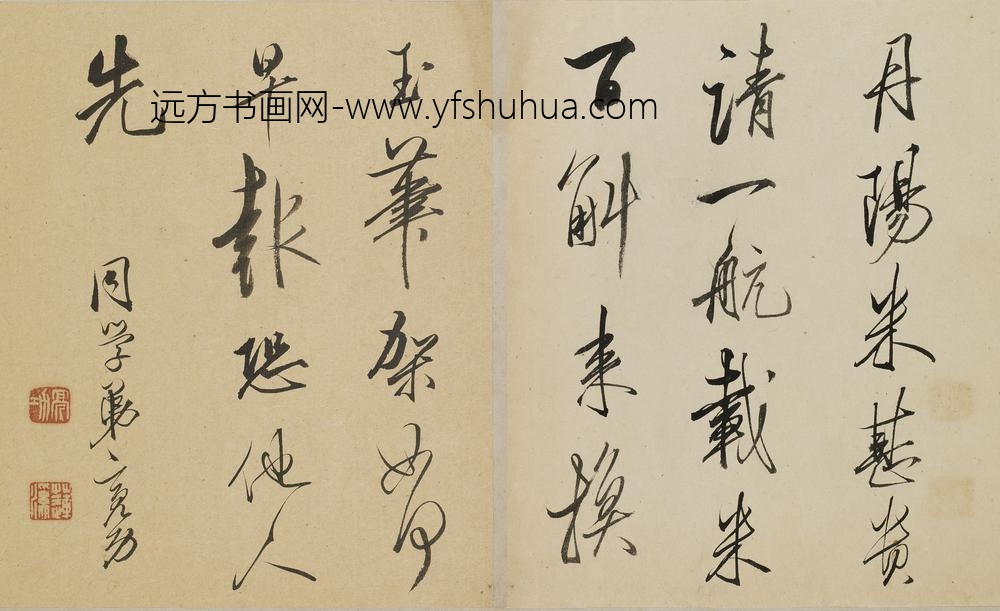 丹陽米甚貴
請一航載米
百斛來換
玉筆架如何
早報恐他人
先
同學弟亮功
远方书画网-www.yfshuhua.com